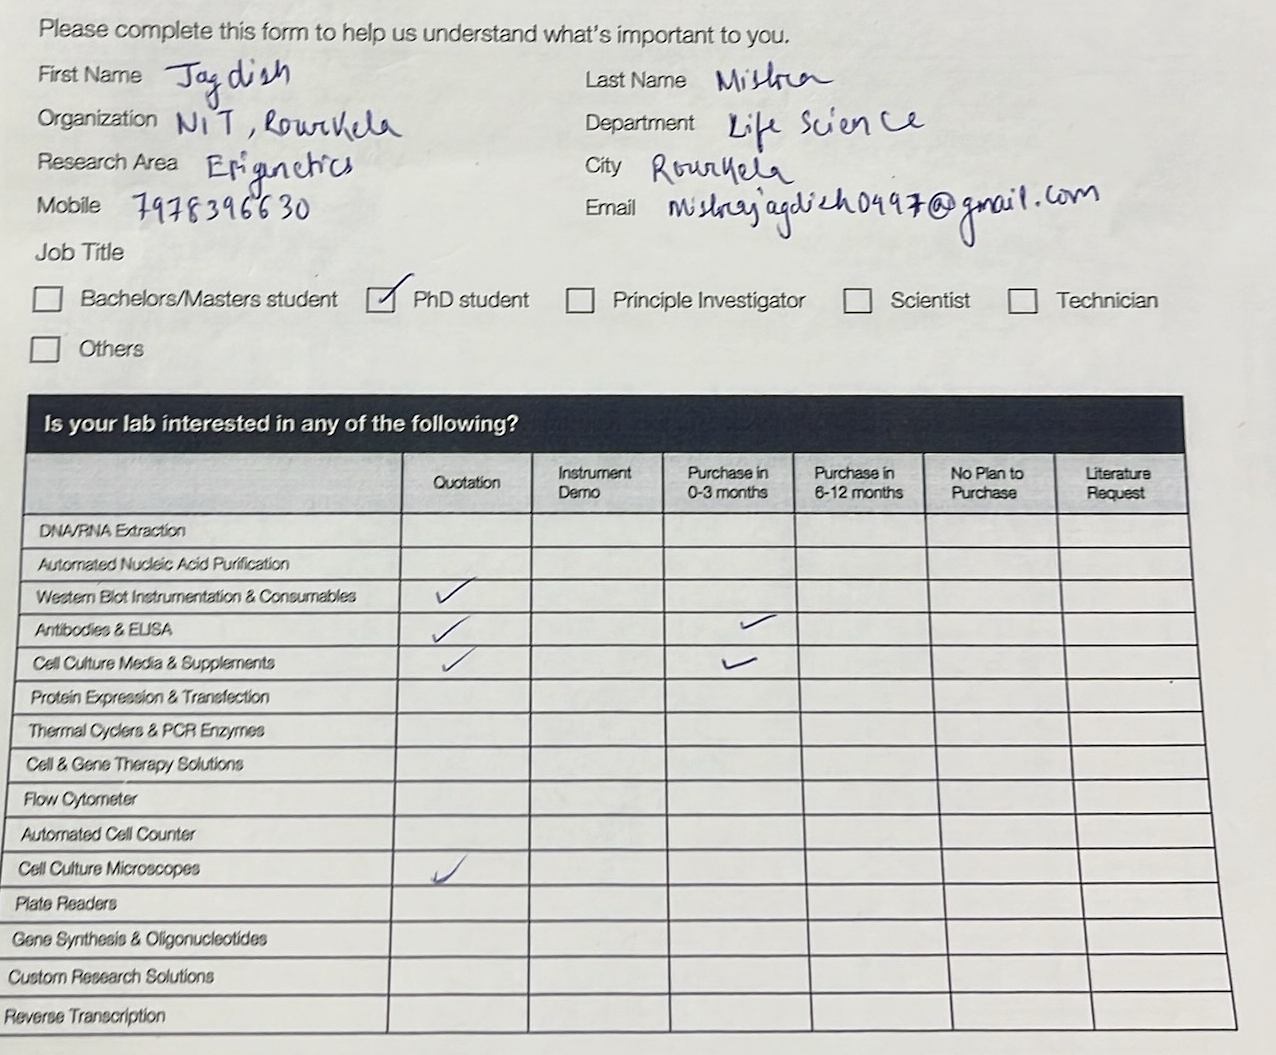 Please complete this form to help us understand what's important to you.
First Name Jagdish Last Name Mishra
Organization NIT, Rourkela Department Life Science
Research Area Epigenetics City Rourkela
Mobile 7978396630 Email mishrajagdish0497@gmail.com
Job Title
☐ Bachelors/Masters student ☑ PhD student ☐ Principle Investigator ☐ Scientist ☐ Technician
☐ Others
Is your lab interested in any of the following?
Quotation Instrument Demo Purchase in 0-3 months Purchase in 6-12 months No Plan to Purchase Literature Request
DNA/RNA Extraction
Automated Nucleic Acid Purification
Western Blot Instrumentation & Consumables ✓
Antibodies & ELISA ✓ ✓
Cell Culture Media & Supplements ✓ ✓
Protein Expression & Transfection
Thermal Cyclers & PCR Enzymes
Cell & Gene Therapy Solutions
Flow Cytometer
Automated Cell Counter
Cell Culture Microscopes ✓
Plate Readers
Gene Synthesis & Oligonucleotides
Custom Research Solutions
Reverse Transcription